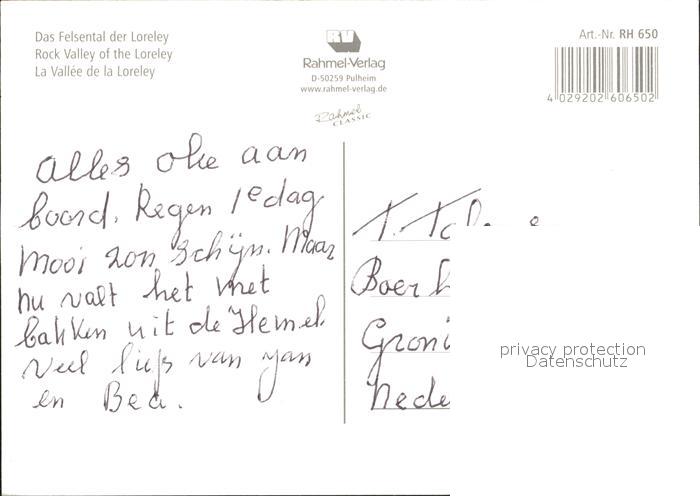 Das Felsental der Loreley
Rock Valley of the Loreley
La Vallée de la Loreley
RV
Rahmel-Verlag
D-50259 Pulheim
www.rahmel-verlag.de
Rahmel
CLASSIC
Art.-Nr. RH 650
4 029202 606502
Alles oke aan
boord. Regen 1e dag
mooi zon schijn. Maar
nu valt het met
bakken uit de Hemel.
Veel liefs van Jan
en Bea.
T.
Boer
Groni
Nede
privacy protection
Datenschutz